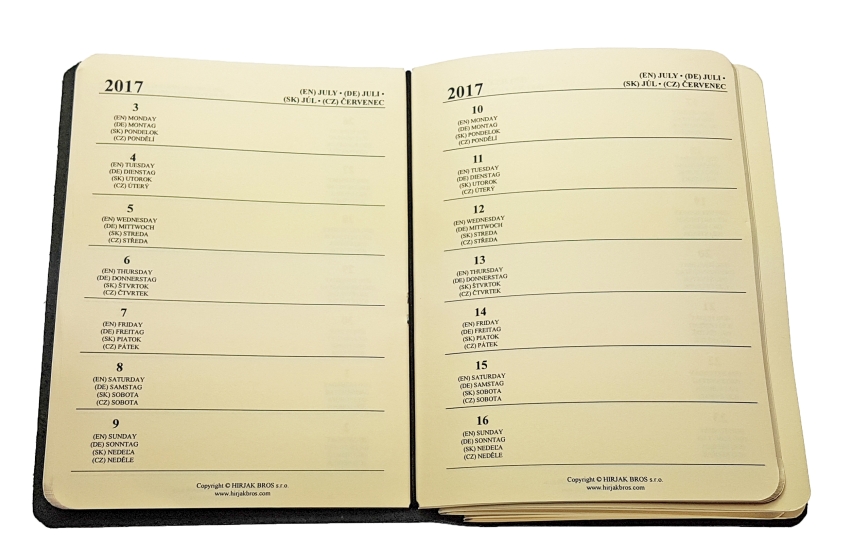 2017
(EN) JULY • (DE) JULI •
(SK) JÚL • (CZ) ČERVENEC
3
(EN) MONDAY
(DE) MONTAG
(SK) PONDELOK
(CZ) PONDĚLÍ
4
(EN) TUESDAY
(DE) DIENSTAG
(SK) UTOROK
(CZ) ÚTERÝ
5
(EN) WEDNESDAY
(DE) MITTWOCH
(SK) STREDA
(CZ) STŘEDA
6
(EN) THURSDAY
(DE) DONNERSTAG
(SK) ŠTVRTOK
(CZ) ČTVRTEK
7
(EN) FRIDAY
(DE) FREITAG
(SK) PIATOK
(CZ) PÁTEK
8
(EN) SATURDAY
(DE) SAMSTAG
(SK) SOBOTA
(CZ) SOBOTA
9
(EN) SUNDAY
(DE) SONNTAG
(SK) NEDEĽA
(CZ) NEDĚLE
Copyright © HIRJAK BROS s.r.o.
www.hirjakbros.com
2017
(EN) JULY • (DE) JULI •
(SK) JÚL • (CZ) ČERVENEC
10
(EN) MONDAY
(DE) MONTAG
(SK) PONDELOK
(CZ) PONDĚLÍ
11
(EN) TUESDAY
(DE) DIENSTAG
(SK) UTOROK
(CZ) ÚTERÝ
12
(EN) WEDNESDAY
(DE) MITTWOCH
(SK) STREDA
(CZ) STŘEDA
13
(EN) THURSDAY
(DE) DONNERSTAG
(SK) ŠTVRTOK
(CZ) ČTVRTEK
14
(EN) FRIDAY
(DE) FREITAG
(SK) PIATOK
(CZ) PÁTEK
15
(EN) SATURDAY
(DE) SAMSTAG
(SK) SOBOTA
(CZ) SOBOTA
16
(EN) SUNDAY
(DE) SONNTAG
(SK) NEDEĽA
(CZ) NEDĚLE
Copyright © HIRJAK BROS s.r.o.
www.hirjakbros.com